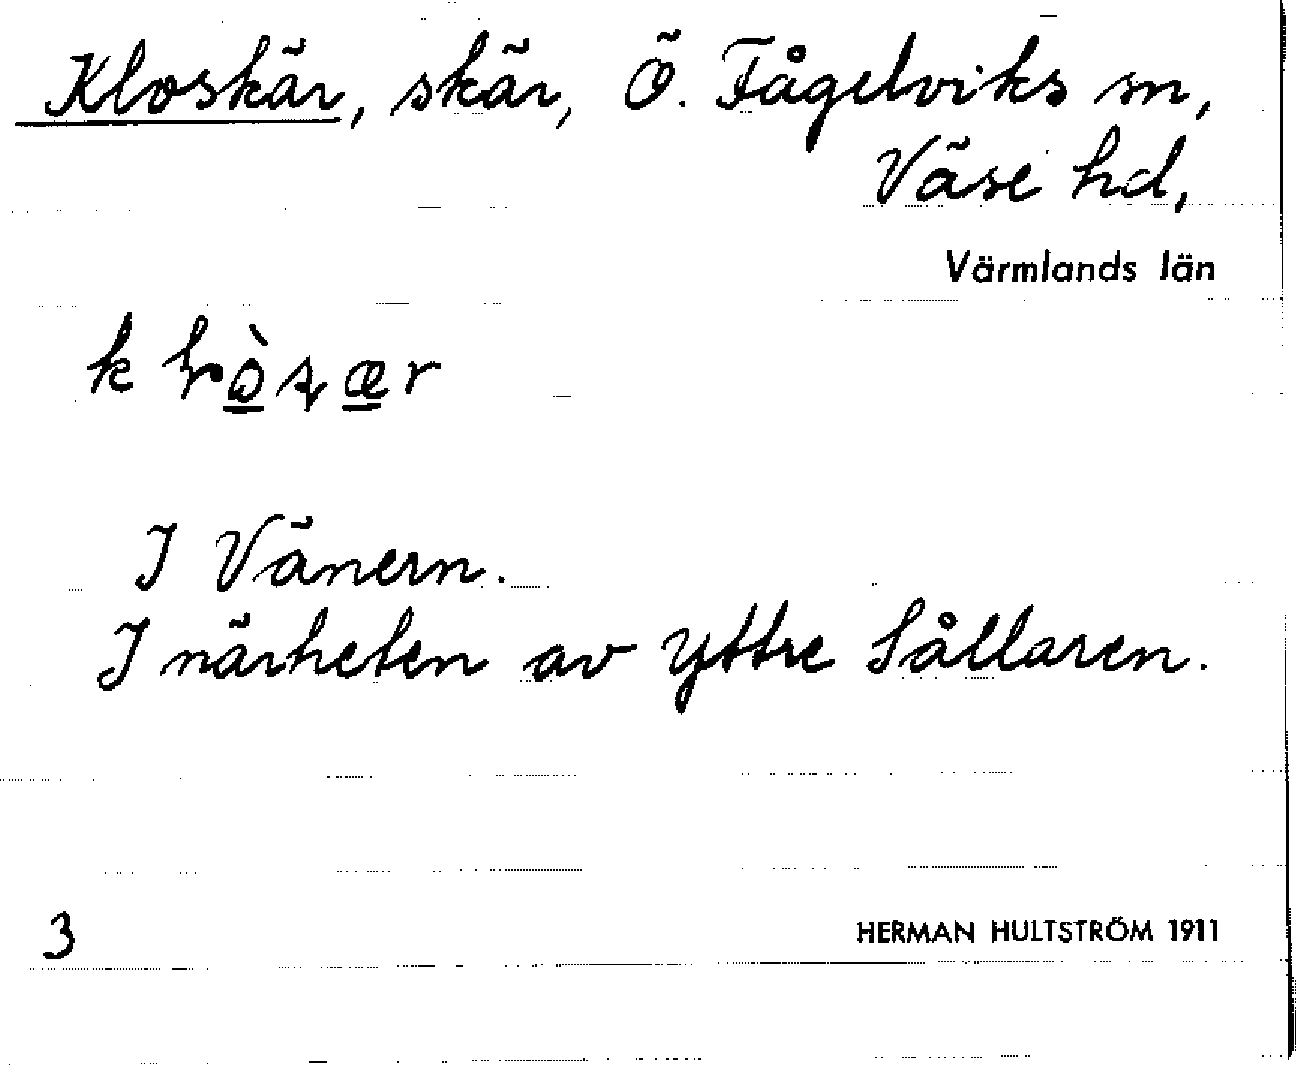 Kloskär, skär, Ö. Fågelviks sn,
Väse hd,
Värmlands län
I Vänern.
I närheten av yttre Sållaren.
3
HERMAN HULTSTRÖM 1911